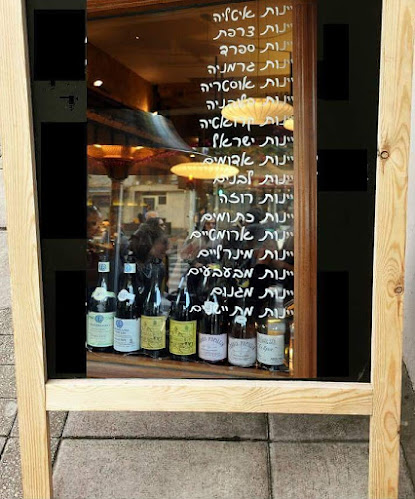 יינות איטליה
יינות צרפת
יינות ספרד
יינות גרמניה
יינות אוסטריה
יינות סלובניה
יינות קרואטיה
יינות ישראל
יינות אדומים
יינות לבנים
יינות רוזה
יינות כתומים
יינות ארומטיים
יינות מינרליים
יינות מבעבעים
יינות מגנום
יינות מתיישנים